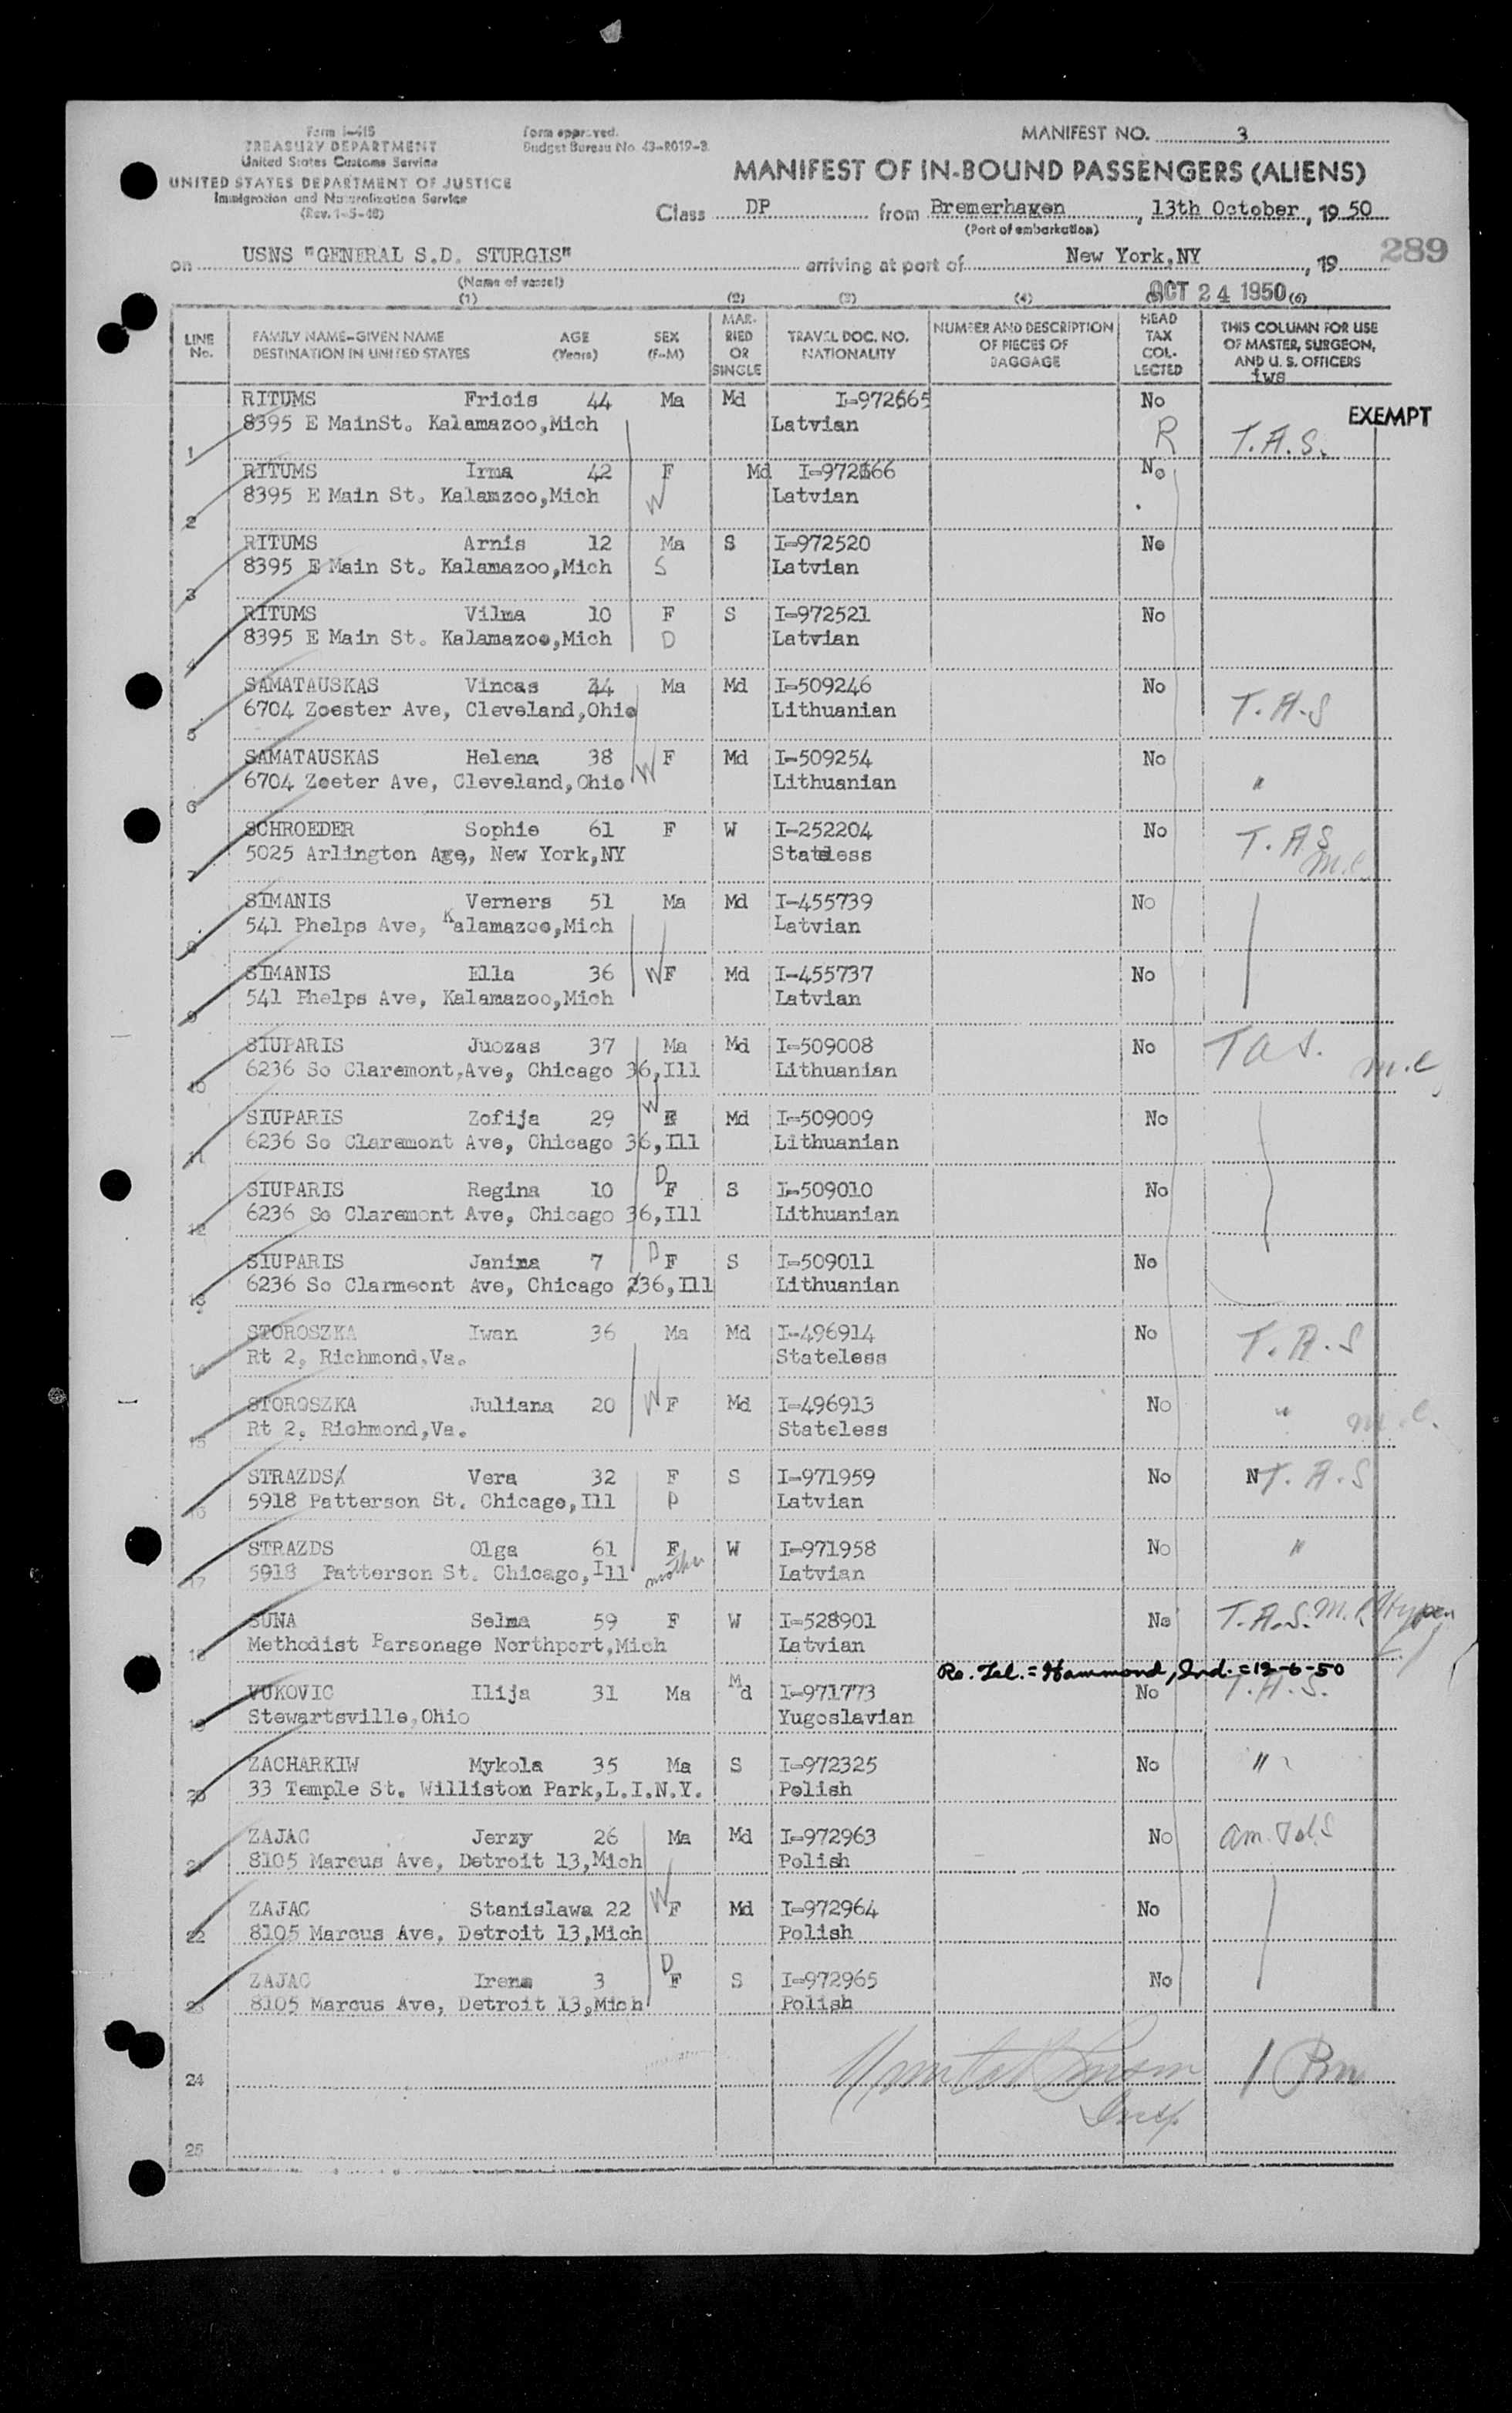 Form I-415
TREASURY DEPARTMENT
United States Customs Service
UNITED STATES DEPARTMENT OF JUSTICE
Immigration and Naturalization Service
(Rev. 1-5-48)
Form approved.
Budget Bureau No. 43-R019-3.
MANIFEST NO. 3
MANIFEST OF IN-BOUND PASSENGERS (ALIENS)
Class DP from Bremerhagen, 13th October, 19 50
(Port of embarkation)
289
on USNS "GENERAL S.D. STURGIS" arriving at port of New York,NY, 19
(Name of vessel)
OCT 24 1950
(1) (2) (3) (4) (6)
LINE No. FAMILY NAME-GIVEN NAME DESTINATION IN UNITED STATES AGE (Years) SEX (F-M) MAR-RIED OR SINGLE TRAVEL DOC. NO. NATIONALITY NUMBER AND DESCRIPTION OF PIECES OF BAGGAGE HEAD TAX COL-LECTED THIS COLUMN FOR USE OF MASTER, SURGEON, AND U. S. OFFICERS
iws
EXEMPT
RITUMS Fricis 44 Ma Md I-972665 No
1 8395 E MainSt. Kalamazoo,Mich Latvian R T.A.S.
RITUMS Irma 42 F Md I-972666 No
2 8395 E Main St. Kalamzoo,Mich W Latvian
RITUMS Arnis 12 Ma S I-972520 No
3 8395 E Main St. Kalamazoo,Mich S Latvian
RITUMS Vilma 10 F S I-972521 No
4 8395 E Main St. Kalamazoo,Mich D Latvian
SAMATAUSKAS Vincas 44 Ma Md I-509246 No
5 6704 Zoester Ave, Cleveland,Ohio Lithuanian T.A.S
SAMATAUSKAS Helena 38 W F Md I-509254 No
6 6704 Zoeter Ave, Cleveland,Ohio Lithuanian "
SCHROEDER Sophie 61 F W I-252204 No T.A.S
7 5025 Arlington Age, New York,NY Stateless m.c.
SIMANIS Verners 51 Ma Md I-455739 No
8 541 Phelps Ave, Kalamazoo,Mich Latvian
SIMANIS Ella 36 W F Md I-455737 No
9 541 Phelps Ave, Kalamazoo,Mich Latvian
SIUPARIS Juozas 37 Ma Md I-509008 No TAS.
10 6236 So Claremont,Ave, Chicago 36,Ill Lithuanian m.c
SIUPARIS Zofija 29 W F Md I-509009 No
11 6236 So Claremont Ave, Chicago 36,Ill Lithuanian
SIUPARIS Regina 10 D F S I-509010 No
12 6236 So Claremont Ave, Chicago 36,Ill Lithuanian
SIUPARIS Janina 7 D F S I-509011 No
13 6236 So Clarmeont Ave, Chicago 36,Ill Lithuanian
STOROSZKA Iwan 36 Ma Md I-496914 No T.A.S
14 Rt 2, Richmond,Va. Stateless
STOROSZKA Juliana 20 W F Md I-496913 No "
15 Rt 2, Richmond,Va. Stateless m.c.
STRAZDS Vera 32 F S I-971959 No NT.A.S
16 5918 Patterson St. Chicago,Ill P Latvian
STRAZDS Olga 61 F W I-971958 No "
17 5918 Patterson St. Chicago,Ill mother Latvian
SUNA Selma 59 F W I-528901 No T.A.S. M.C.
18 Methodist Parsonage Northport,Mich Latvian
Re. Tel. = Hammond, Ind. = 12-6-50
VUKOVIC Ilija 31 Ma Md I-971773 No T.A.S.
19 Stewartsville,Ohio Yugoslavian
ZACHARKIW Mykola 35 Ma S I-972325 No "
20 33 Temple St. Williston Park,L.I.N.Y. Polish
ZAJAC Jerzy 26 Ma Md I-972963 No
21 8105 Marcus Ave, Detroit 13,Mich Polish
ZAJAC Stanislawa 22 W F Md I-972964 No
22 8105 Marcus Ave, Detroit 13,Mich Polish
ZAJAC Irena 3 D F S I-972965 No
23 8105 Marcus Ave, Detroit 13,Mich Polish
24
25